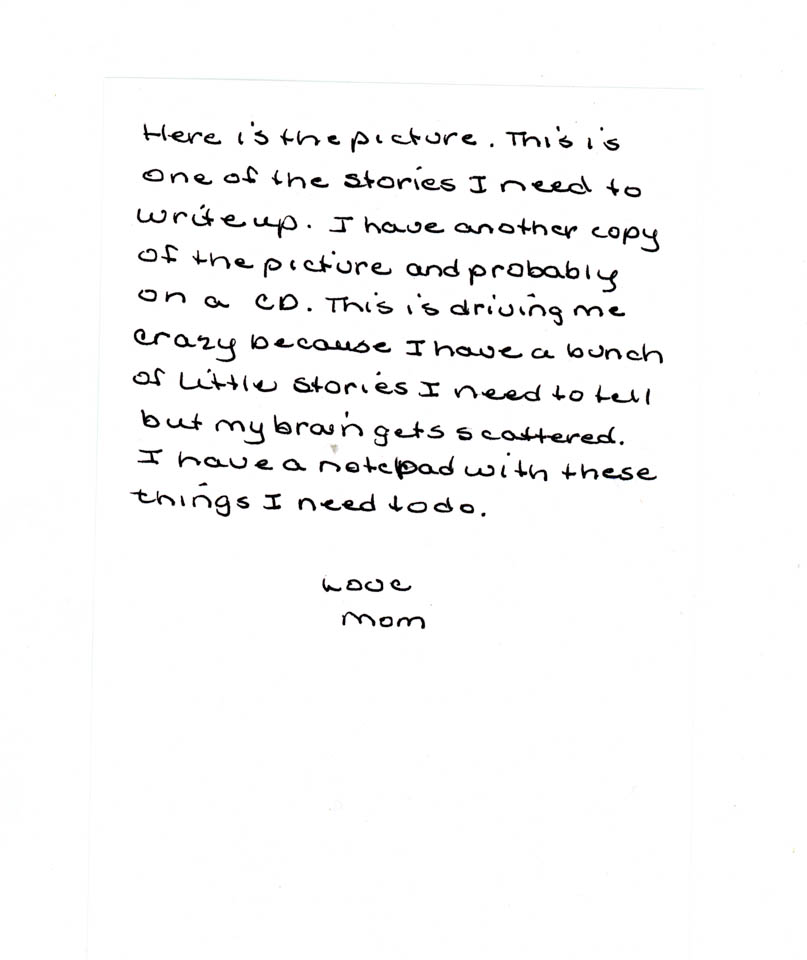 Here is the picture. This is
one of the stories I need to
write up. I have another copy
of the picture and probably
on a CD. This is driving me
crazy because I have a bunch
of little stories I need to tell
but my brain gets scattered.
I have a notepad with these
things I need to do.
Love
Mom